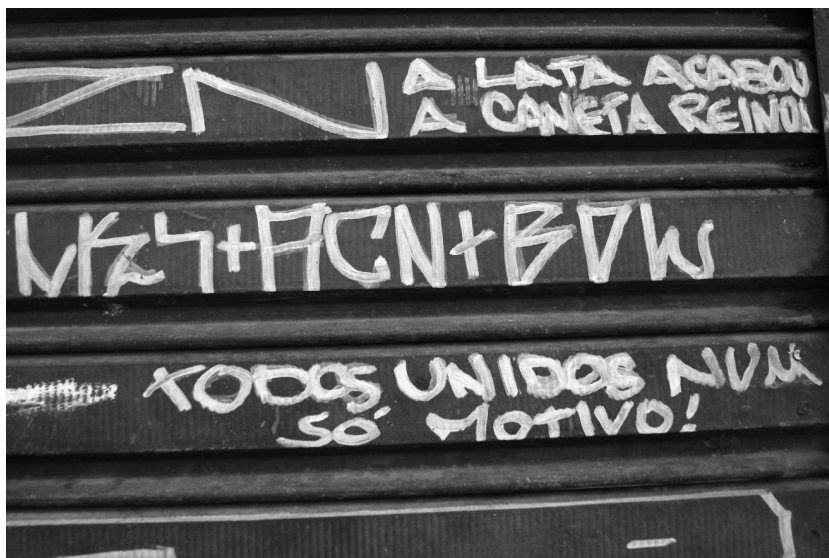 ZN
A LATA ACABOU
A CANETA REINOU
+ACN+BDW
TODOS UNIDOS NUM
SÓ MOTIVO!